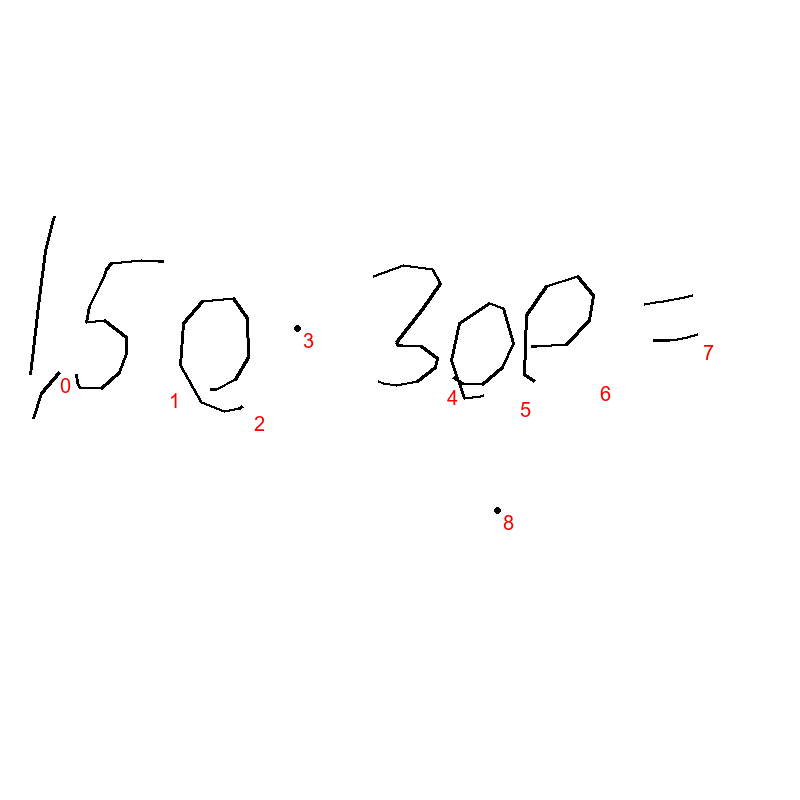 150 · 300 =
0 1 2 3 4 5 6 7
. 8